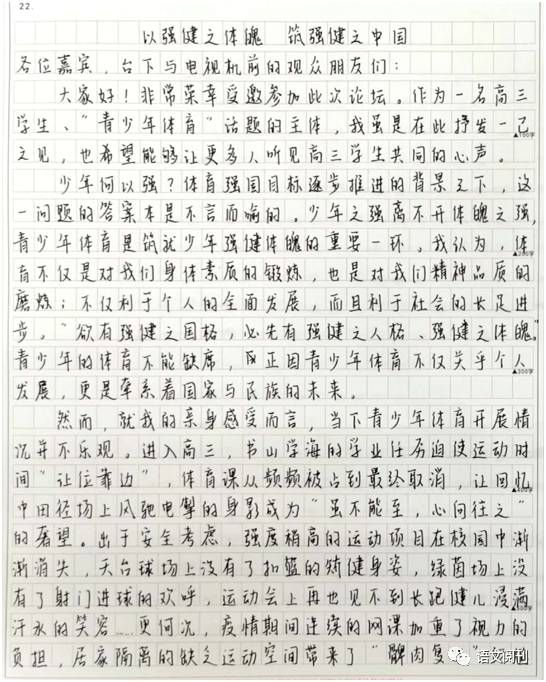 22.
以强健之体魄 筑强健之中国
各位嘉宾,台下与电视机前的观众朋友们:
大家好!非常荣幸受邀参加此次论坛。作为一名高三
学生、“青少年体育”话题的主体,我虽是在此抒发一己
之见,也希望能够让更多人听见高三学生共同的心声。
▲100字
少年何以强?体育强国目标逐步推进的背景之下,这
一问题的答案本是不言而喻的。少年之强离不开体魄之强,
青少年体育是筑就少年强健体魄的重要一环。我认为,体
▲200字
育不仅是对我们身体素质的锻炼,也是对我们精神品质的
磨炼;不仅利于个人的全面发展,而且利于社会的长足进
步。“欲有强健之国格,必先有强健之人格、强健之体魄。”
青少年的体育不能缺席,正因青少年体育不仅关乎个人
▲300字
发展,更是牵系着国家与民族的未来。
然而,就我的亲身感受而言,当下青少年体育开展情
况并不乐观。进入高三,书山学海的学业任务迫使运动时
间“让位靠边”,体育课从频频被占到最终取消,让回忆
▲400字
中田径场上风驰电掣的身影成为“虽不能至,心向往之”
的奢望。出于安全考虑,强度稍高的运动项目在校园中渐
渐消失,天台球场上没有了扣篮的矫健身姿,绿茵场上没
有了射门进球的欢呼,运动会上再也见不到长跑健儿浸满
▲500字
汗水的笑容……更何况,疫情期间连续的网课加重了视力的
负担,居家隔离的缺乏运动空间带来了“髀肉复
语文阅刊